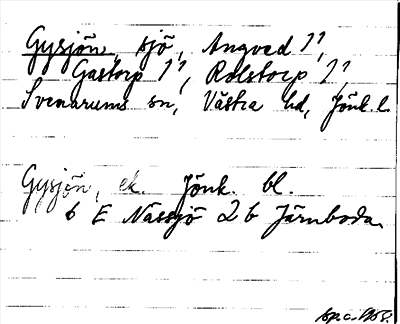 Gysjön, sjö, Angvad 1¹,
Gastorp 1¹, Rolstorp 1¹,
Svenarums sn, Västra hd, Jönk. l.
Gysjön, ek. Jönk. bl.
6 E Nässjö 2 b Järnboda